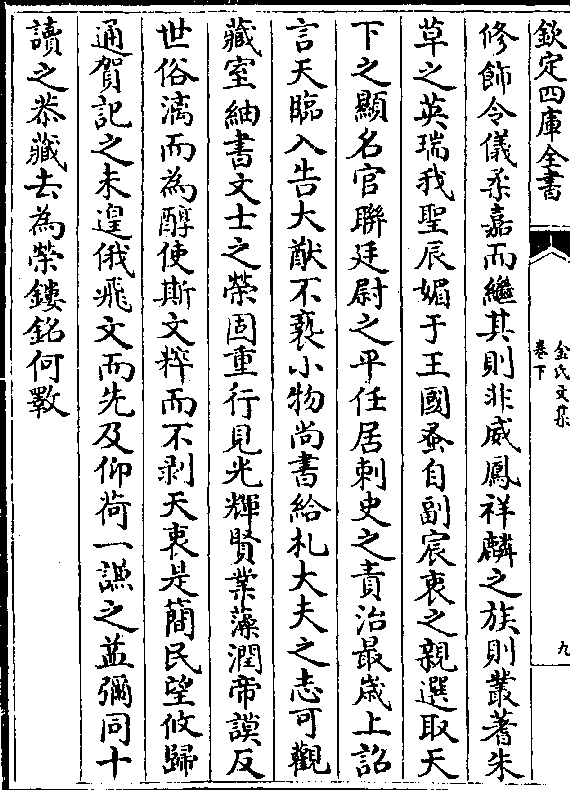 欽定四庫全書
金氏文集
卷下
九
修飾令儀柔嘉而繼其則非威鳳祥麟之族則叢蓍朱
草之英瑞我聖辰媚于王國蚤自副宸衷之親選取天
下之顯名官聯廷尉之平任居刺史之責治最歲上詔
言天臨入告大猷不褻小物尚書給札大夫之志可觀
藏室紬書文士之榮固重行見光輝賢業藻潤帝謨反
世俗漓而為醇使斯文粹而不剥天衷是簡民望攸歸
通賀記之未遑俄飛文而先及仰荷一謙之益彌同十
讀之恭藏去為榮鏤銘何斁